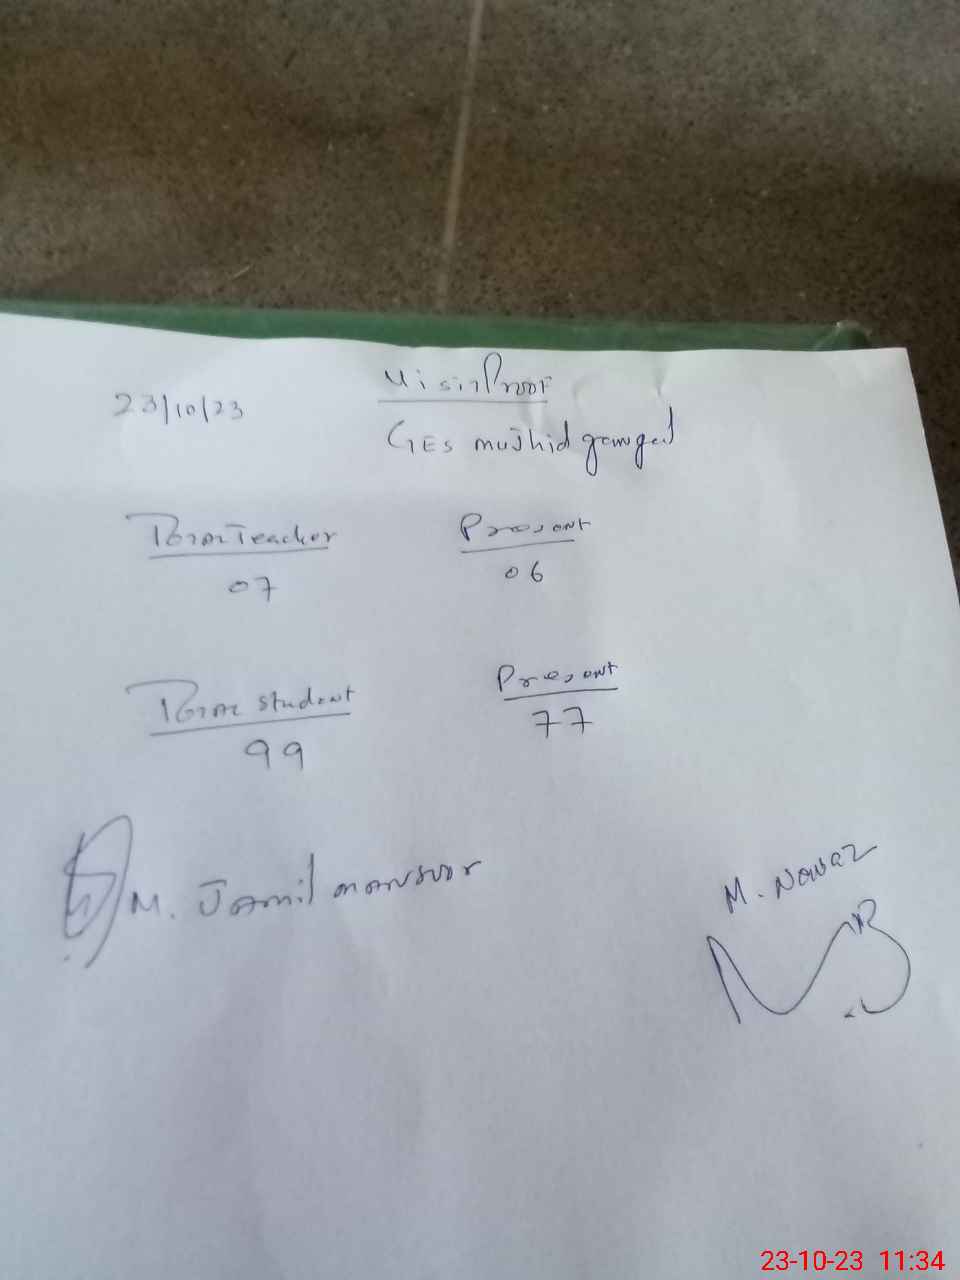 23/10/23
Visit Proof
GES mujhid
Total Teacher Present
07 06
Total Student Present
99 77
M. Jamil mansoor
M. Nawaz
23-10-23 11:34